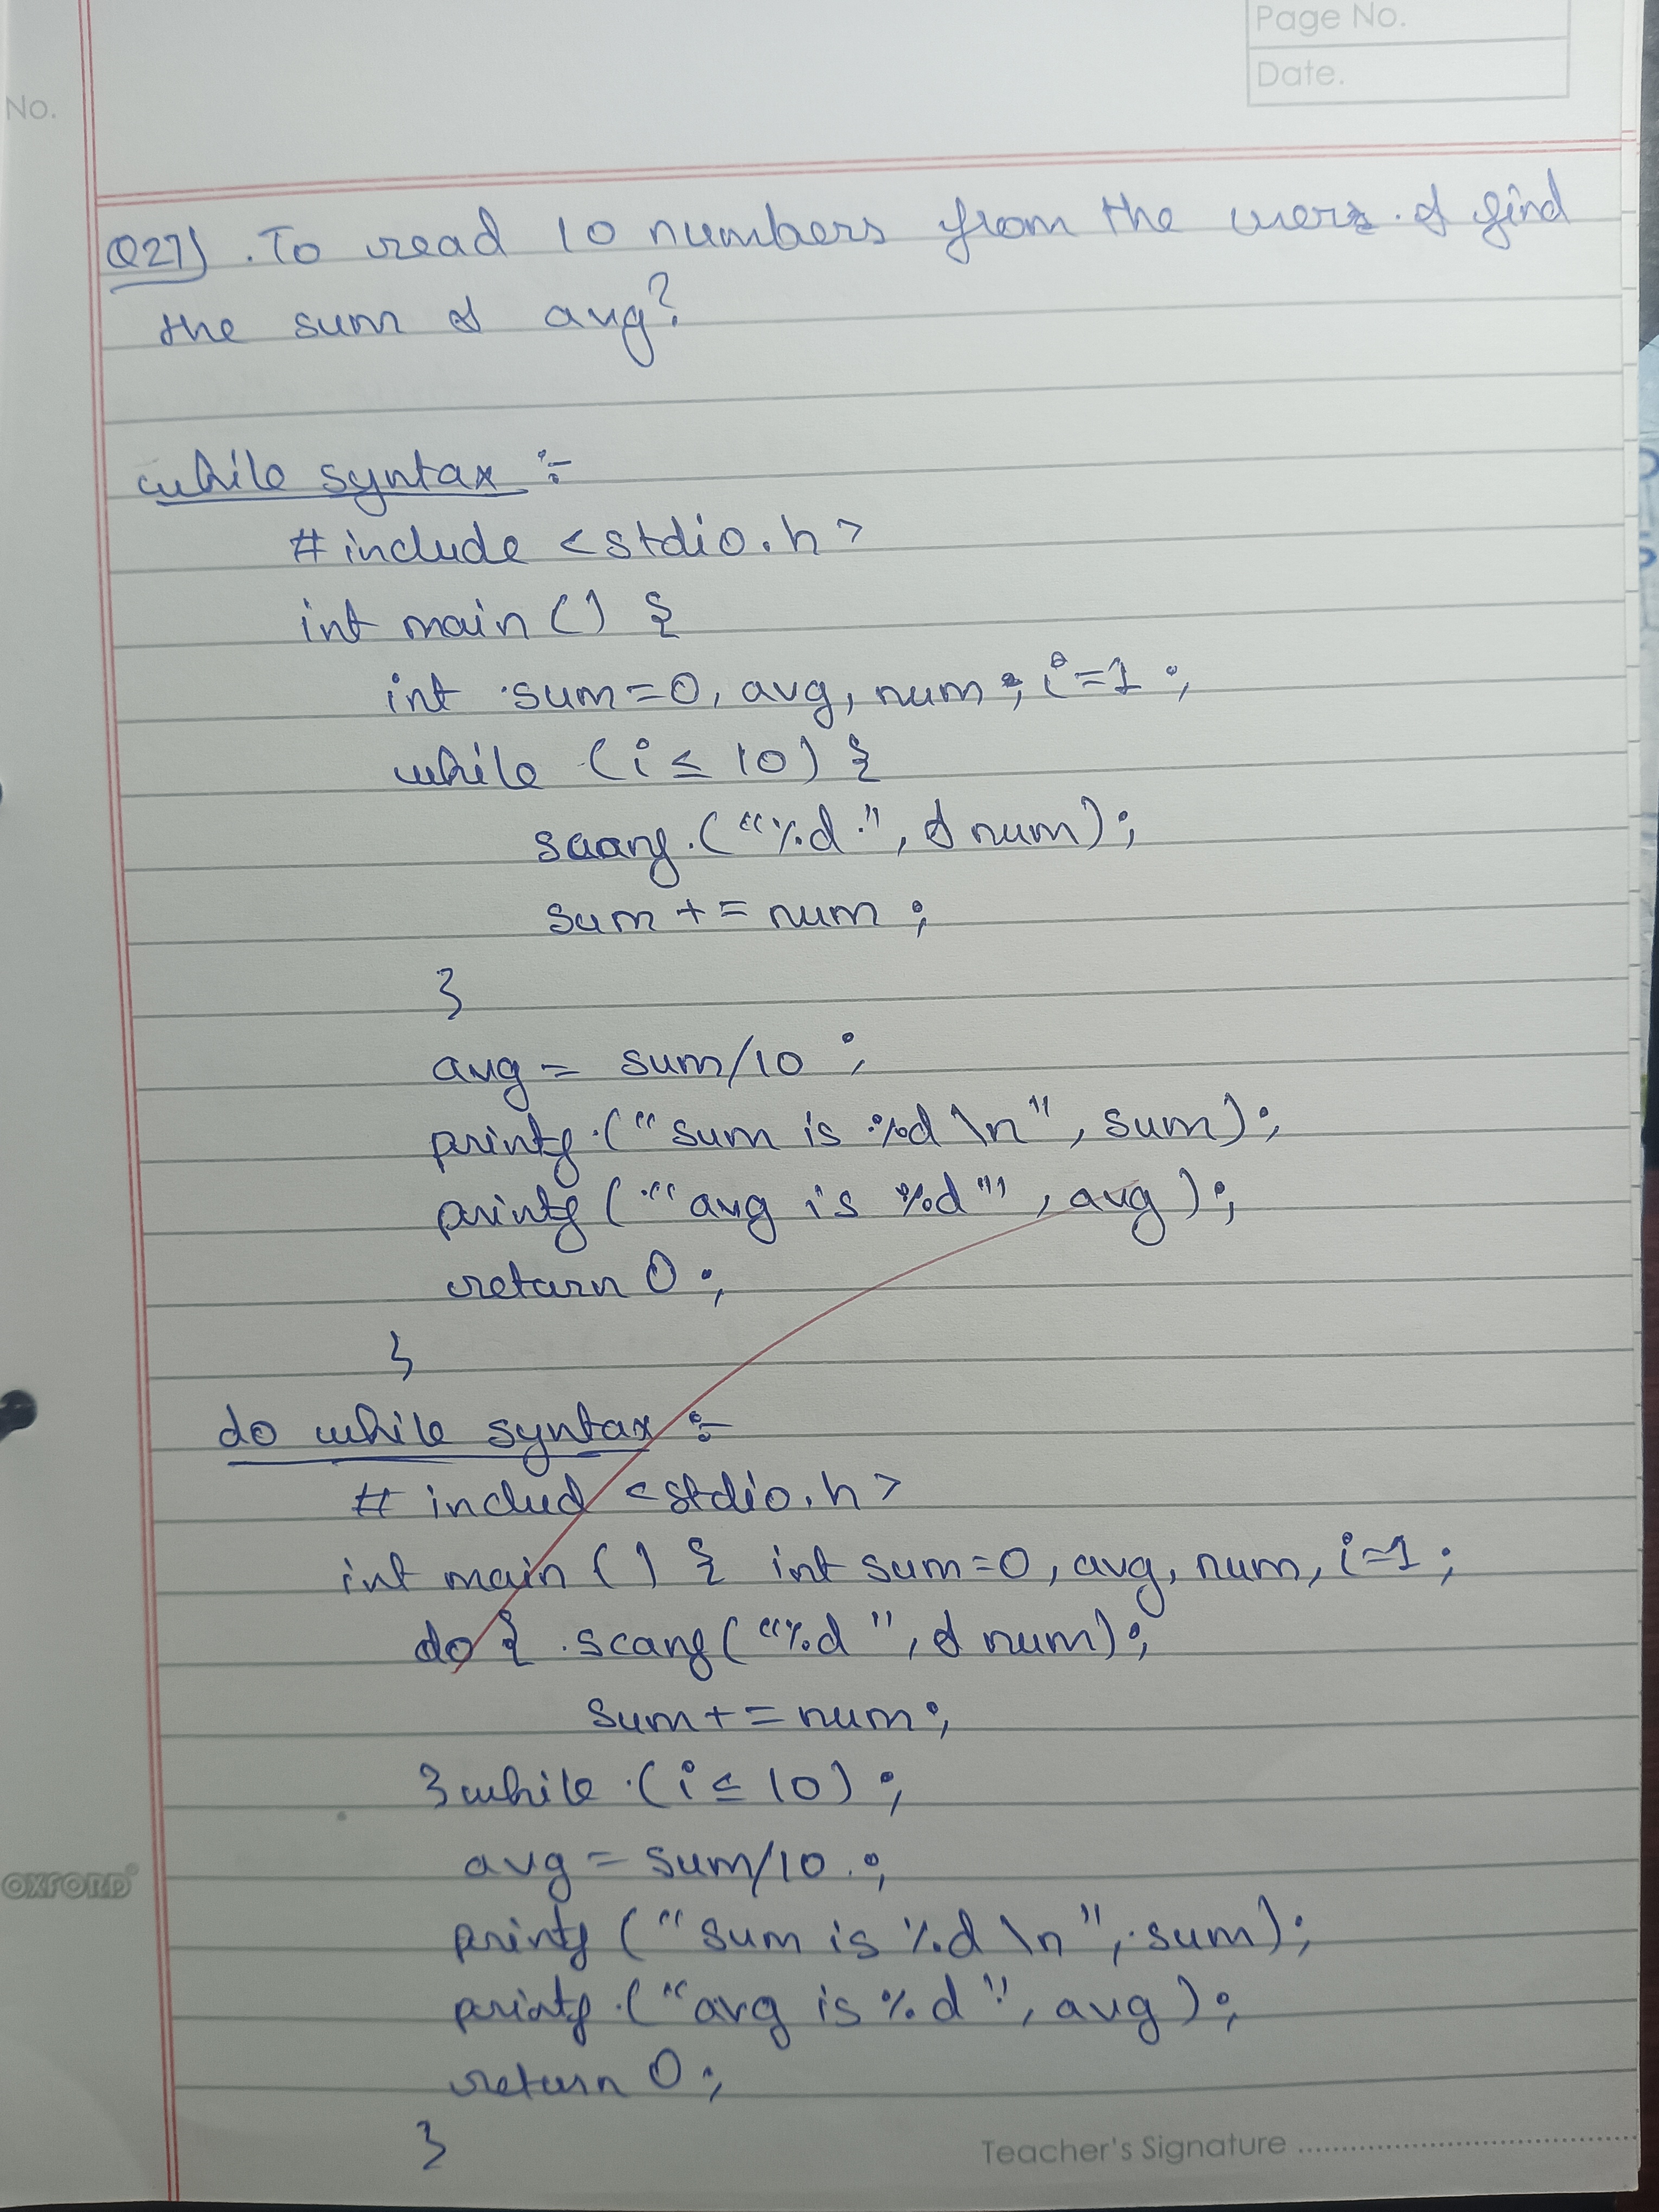 Page No.
Date.
No.
Q27) . To read 10 numbers from the users . & find
the sum & avg?
while syntax :-
#include <stdio.h>
int main () {
int sum=0, avg, num ; i=1 ;
while (i ≤ 10) {
scanf ("%d", &num);
sum += num ;
}
avg = sum/10 ;
printf ("sum is %d \n", sum);
printf ("avg is %d", avg);
return 0 ;
}
do while syntax :-
# includ <stdio.h>
int main () { int sum=0, avg, num, i=1 ;
do { scanf ("%d", &num);
sum+=num;
} while (i ≤ 10) ;
avg = sum/10 ;
printf ("sum is %d \n", sum);
printf ("avg is %d", avg);
return 0 ;
}
OXFORD
Teacher's Signature ..............................